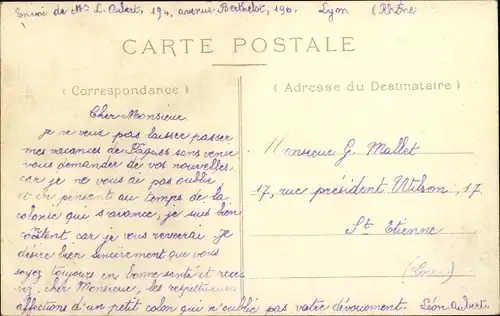 Envoi de Mr L. Aubert, 194, avenue Berthelot, 196. Lyon (Rhône
CARTE POSTALE
(Correspondance)
(Adresse du Destinataire)
Cher Monsieur
je ne veux pas laisser passer
mes vacances de Pâques sans venir
vous demander de vos nouvelles
car je ne vous ai pas oublié
et en pensant au temps de la
colonie qui s'avance, je suis bien
content car je vous reverrai. Je
désire bien sincèrement que vous
soyez toujours en bonne santé et rece
vez, cher Monsieur, les respectueuses
affections d'un petit colon qui n'oublie pas votre dévouement. Léon Aubert.
Monsieur G. Mallet
17, rue président Wilson, 17.
St Etienne
(Loire)